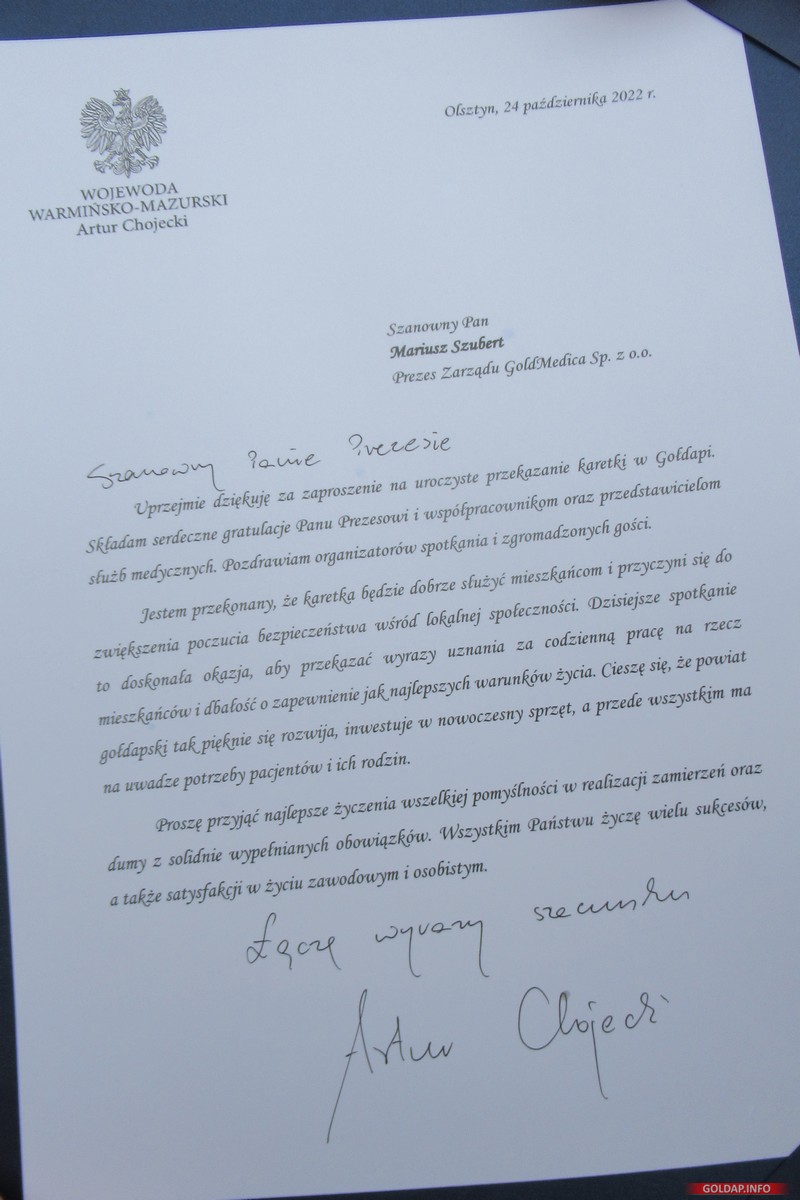 Olsztyn, 24 października 2022 r.
WOJEWODA
WARMIŃSKO-MAZURSKI
Artur Chojecki
Szanowny Pan
Mariusz Szubert
Prezes Zarządu GoldMedica Sp. z o.o.
Szanowny Panie Prezesie
Uprzejmie dziękuję za zaproszenie na uroczyste przekazanie karetki w Gołdapi.
Składam serdeczne gratulacje Panu Prezesowi i współpracownikom oraz przedstawicielom
służb medycznych. Pozdrawiam organizatorów spotkania i zgromadzonych gości.
Jestem przekonany, że karetka będzie dobrze służyć mieszkańcom i przyczyni się do
zwiększenia poczucia bezpieczeństwa wśród lokalnej społeczności. Dzisiejsze spotkanie
to doskonała okazja, aby przekazać wyrazy uznania za codzienną pracę na rzecz
mieszkańców i dbałość o zapewnienie jak najlepszych warunków życia. Cieszę się, że powiat
gołdapski tak pięknie się rozwija, inwestuje w nowoczesny sprzęt, a przede wszystkim ma
na uwadze potrzeby pacjentów i ich rodzin.
Proszę przyjąć najlepsze życzenia wszelkiej pomyślności w realizacji zamierzeń oraz
dumy z solidnie wypełnianych obowiązków. Wszystkim Państwu życzę wielu sukcesów,
a także satysfakcji w życiu zawodowym i osobistym.
Łączę wyrazy szacunku
Artur Chojecki
GOLDAP.INFO